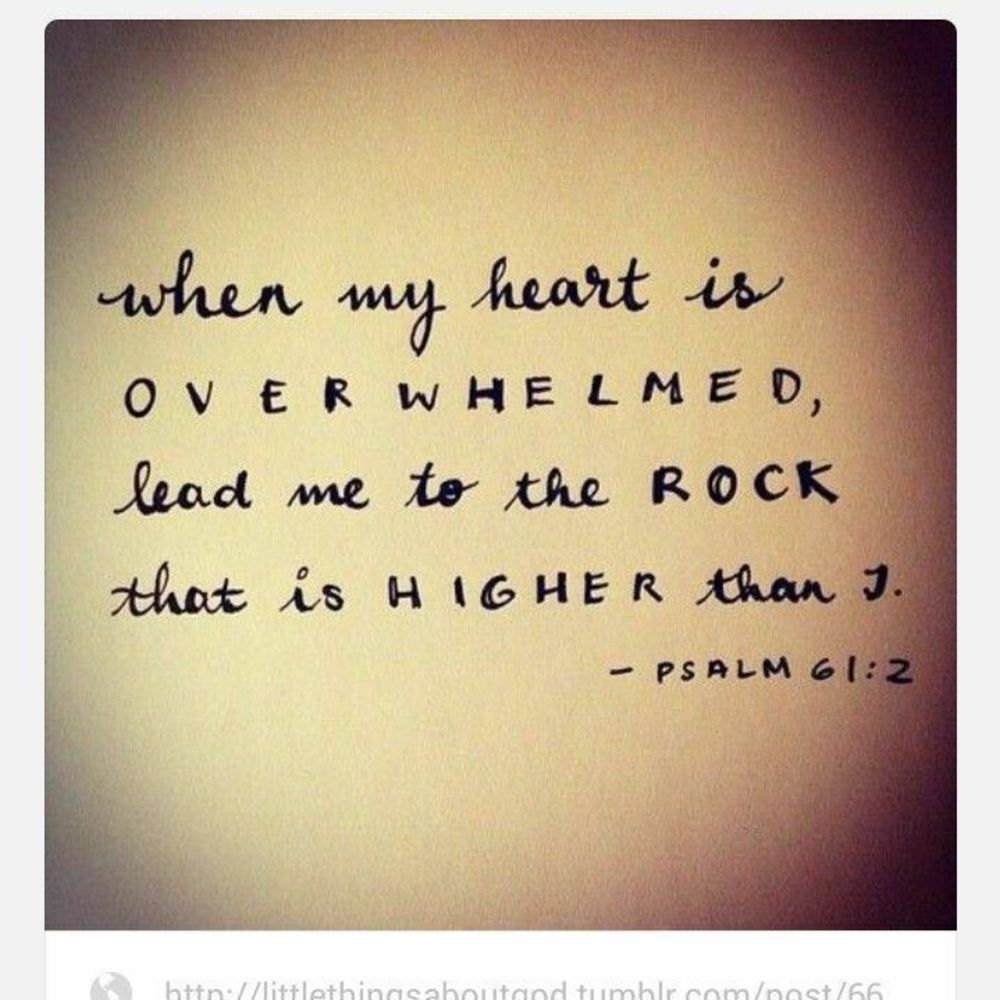 when my heart is
OVERWHELMED,
lead me to the ROCK
that is HIGHER than I.
- PSALM 61:2
http://littlethingsaboutgod.tumblr.com/post/66